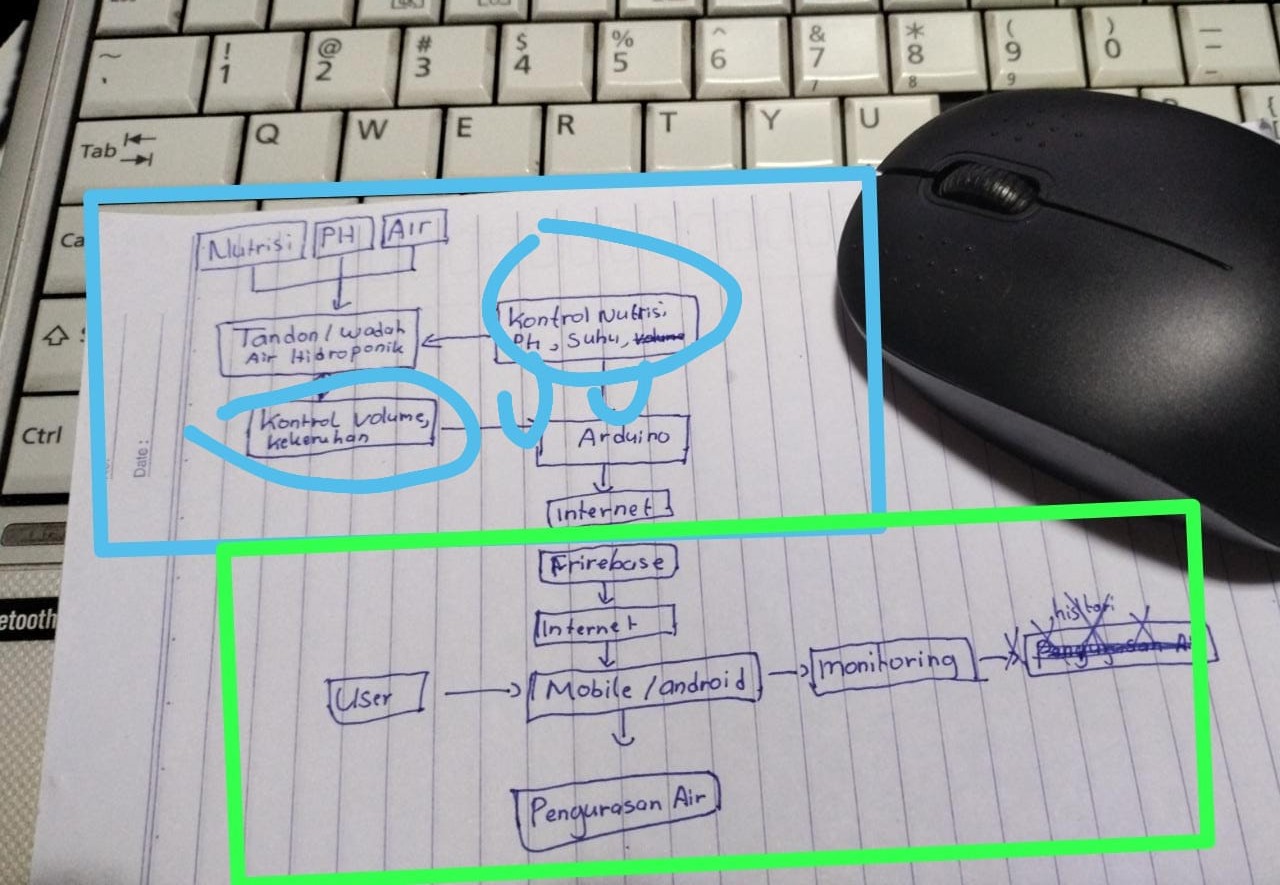 ~
`
!
1
@
2
#
3
$
4
%
5
^
6
&
7
7
*
8
8
(
9
9
)
0
Tab
Q
W
E
R
T
Y
U
Ctrl
etooth
Date:
Nutrisi
PH
Air
Tandon / wadah
Air Hidroponik
Kontrol Nutrisi
PH, Suhu, volume
Kontrol volume,
kekeruhan
Arduino
Internet
Frirebase
Internet
User
Mobile / android
monitoring
histori
Pengurasan Air
Pengurasan Air